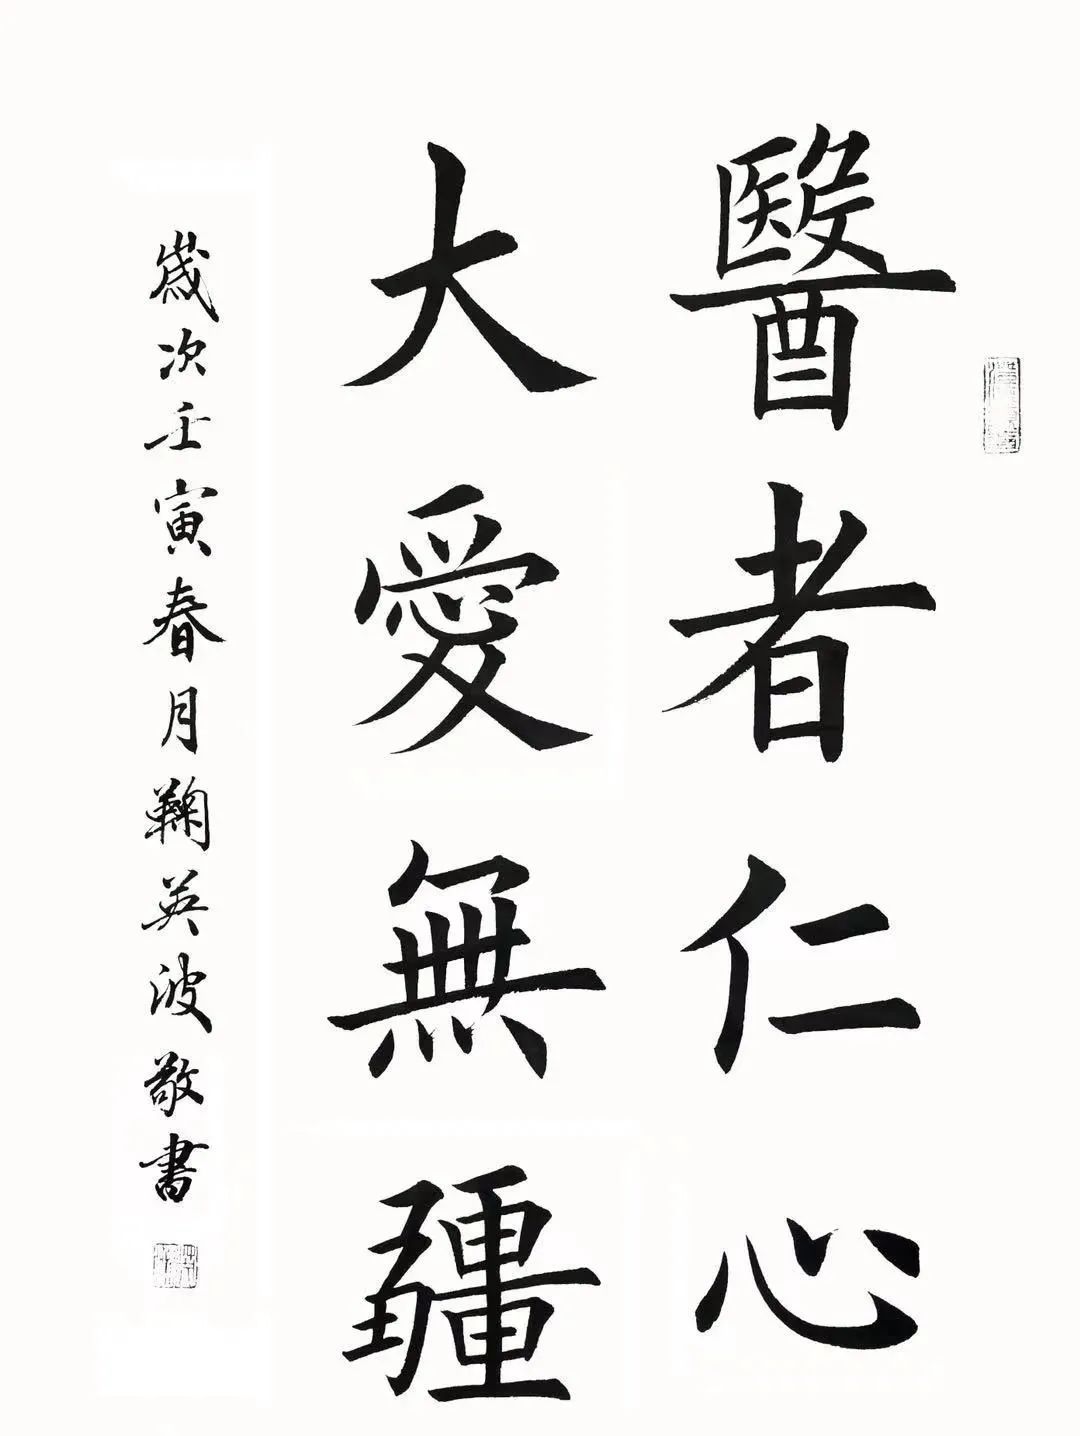 醫者仁心
大愛無疆
歲次壬寅春月鞠英波敬書